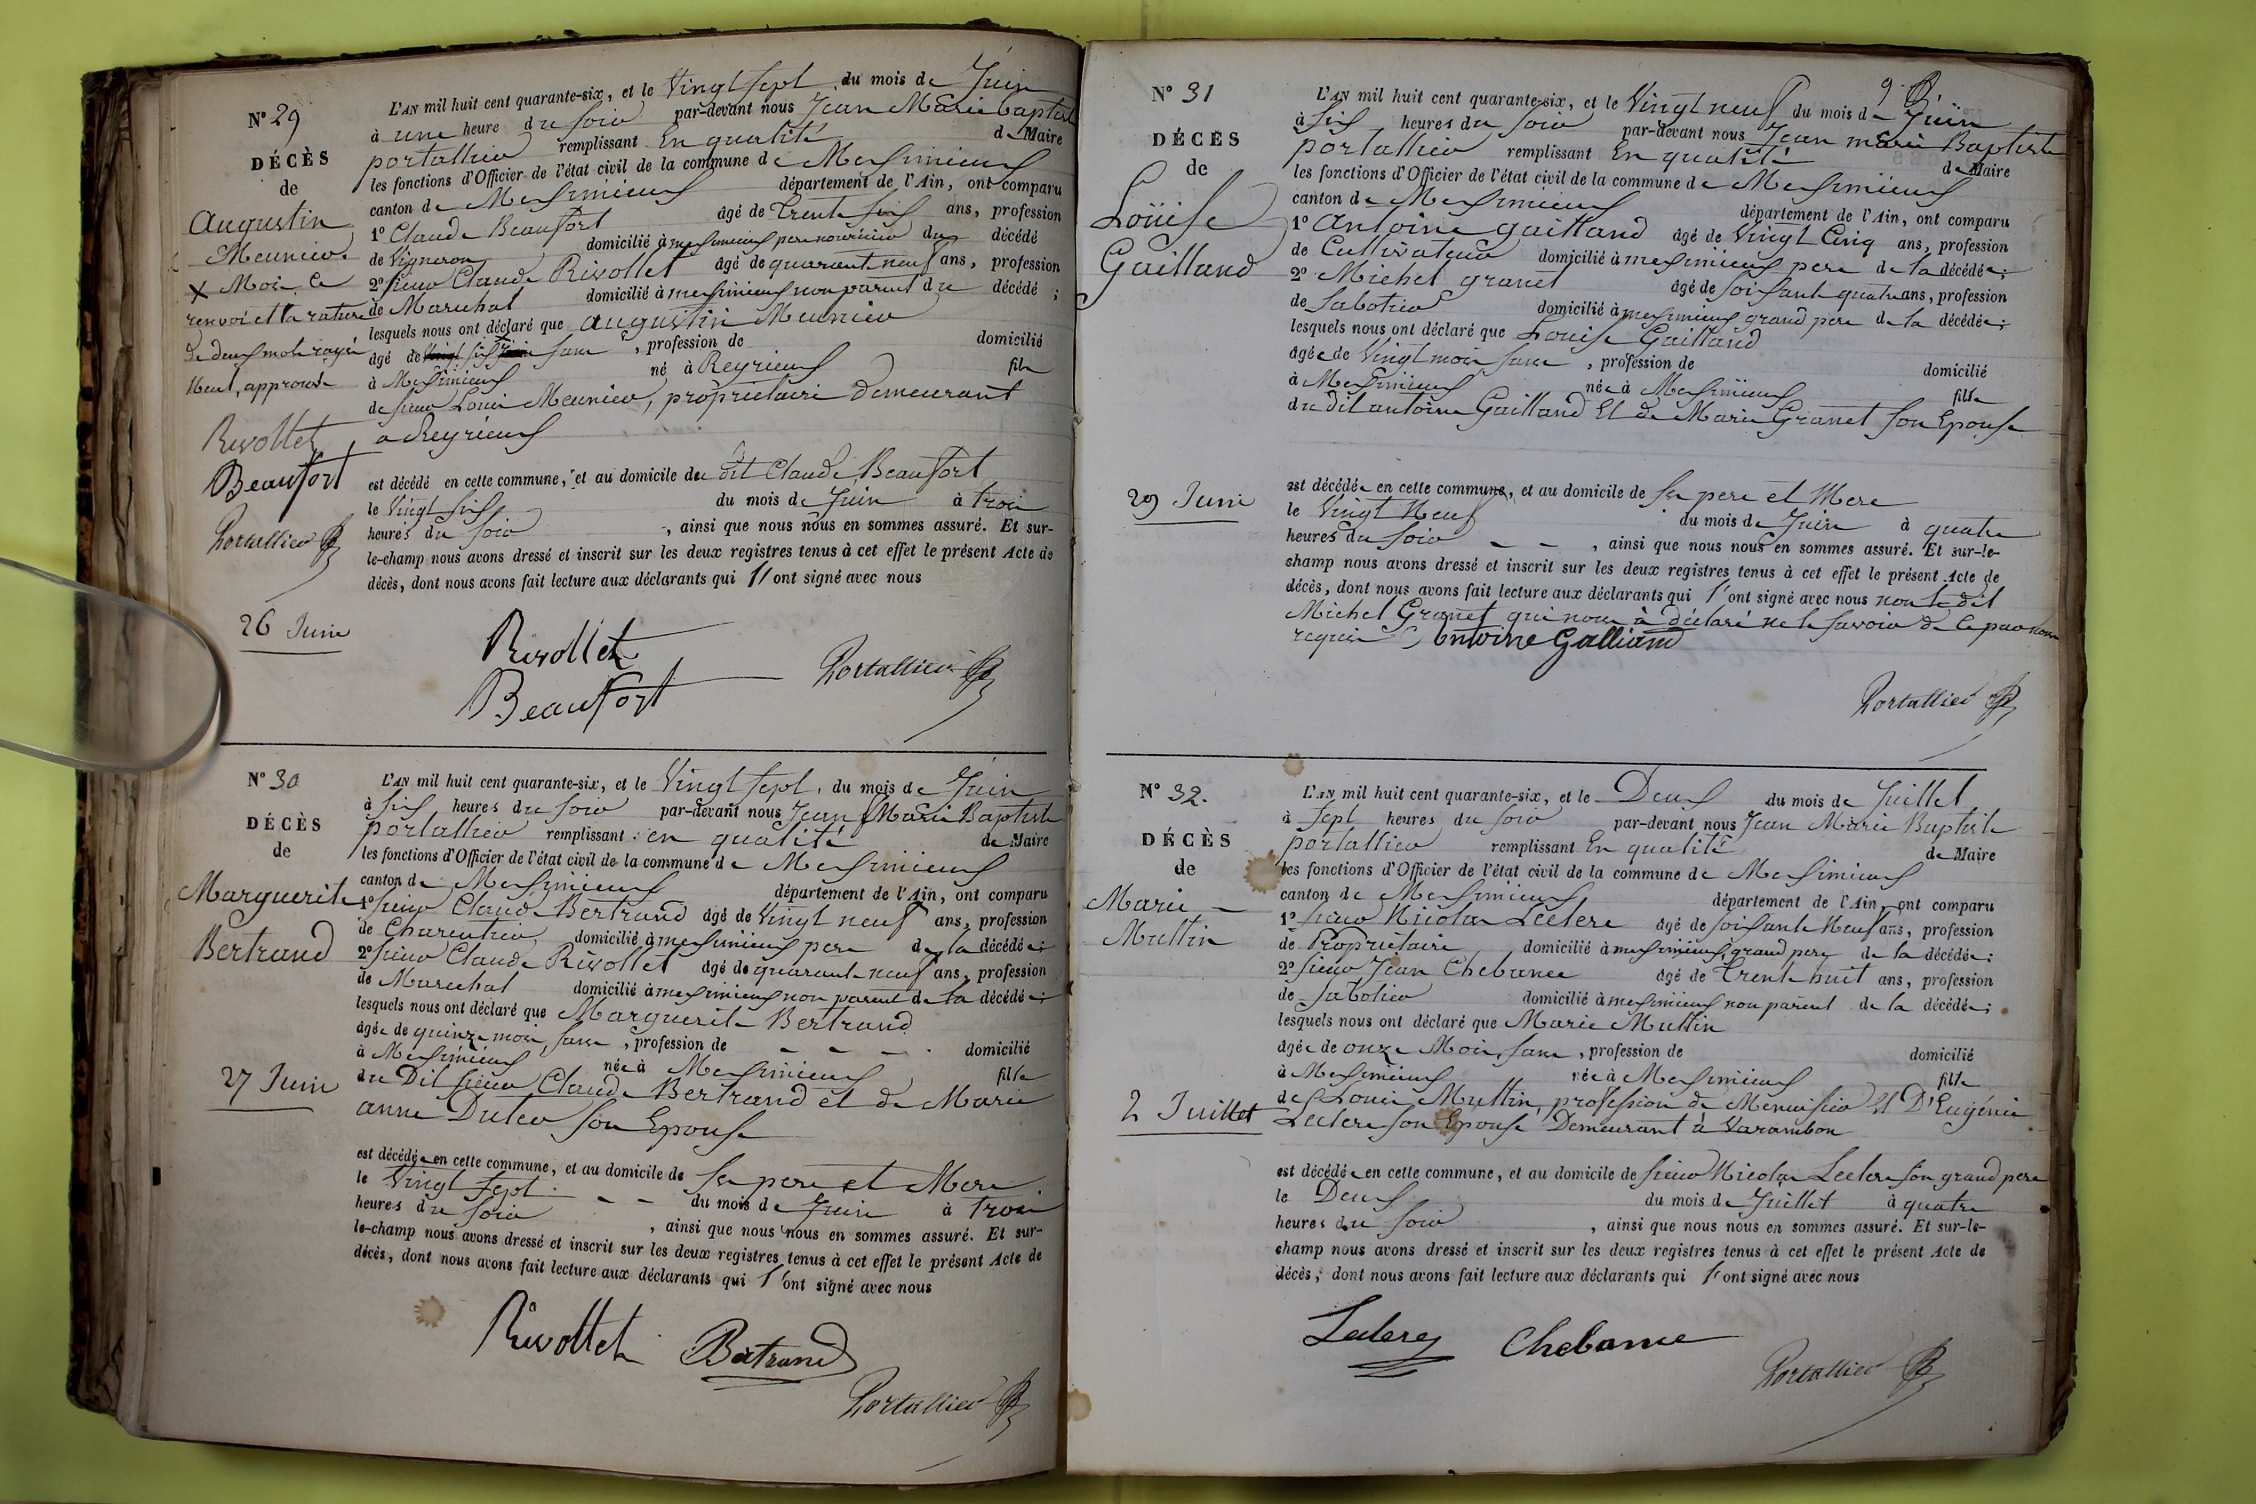 N° 29
DÉCÈS
de
Augustin
Meunier
X Mois Ce
renvoi et la rature
de deux mots rayés
Nuls, approuvé
Rivollet
Beaufort
Portallier
26 Juin
L'AN mil huit cent quarante-six, et le Vingt sept du mois de Juin
à une heure du soir par-devant nous Jean Marie Baptiste
portallier remplissant En qualité de Maire
les fonctions d'Officier de l'état civil de la commune de Messimieux
canton de Messimieux département de l'Ain, ont comparu
1° Claude Beaufort âgé de Trente six ans, profession
de Vigneron domicilié à messimieux pere nourricier du décédé
2° sieur Claude Rivollet âgé de quarante neuf ans, profession
de Maréchal domicilié à messimieux non parent du décédé ;
lesquels nous ont déclaré que augustin Meunier
âgé de sans , profession de domicilié
à Messimieux né à Reyrieux fils
de sieur Louis Meunier, propriétaire demeurant
a Reyrieux
est décédé en cette commune, et au domicile du dit Claude Beaufort
le Vingt six du mois de Juin à trois
heures du soir , ainsi que nous nous en sommes assuré. Et sur-
le-champ nous avons dressé et inscrit sur les deux registres tenus à cet effet le présent Acte de
décès, dont nous avons fait lecture aux déclarants qui l'ont signé avec nous
Rivollet
Beaufort
Portallier
N° 30
DÉCÈS
de
Marguerite
Bertrand
27 Juin
L'AN mil huit cent quarante-six, et le Vingt sept du mois de Juin
à six heures du soir par-devant nous Jean Marie Baptiste
portallier remplissant en qualité de Maire
les fonctions d'Officier de l'état civil de la commune de Messimieux
canton de Messimieux département de l'Ain, ont comparu
1° sieur Claude Bertrand âgé de Vingt neuf ans, profession
de Charentier domicilié à messimieux pere de la décédée ;
2° sieur Claude Rivollet âgé de quarante neuf ans, profession
de Marechal domicilié à messimieux non parent de la décédée ;
lesquels nous ont déclaré que Marguerite Bertrand
âgée de quinze mois, sans , profession de domicilié
à Messimieux née à Messimieux fille
du Dit sieur Claude Bertrand et de Marie
anne Duter son Epouse
est décédée en cette commune, et au domicile de ses pere et Mere
le Vingt sept du mois de Juin à trois
heures du soir , ainsi que nous nous en sommes assuré. Et sur-
le-champ nous avons dressé et inscrit sur les deux registres tenus à cet effet le présent Acte de
décès, dont nous avons fait lecture aux déclarants qui l'ont signé avec nous
Rivollet Bertrand
Portallier
9
N° 31
DÉCÈS
de
Loüise
Gailland
29 Juin
L'AN mil huit cent quarante-six, et le Vingt neuf du mois de Juin
à six heures du soir par-devant nous Jean marie Baptiste
portallier remplissant En qualité de Maire
les fonctions d'Officier de l'état civil de la commune de Messimieux
canton de Messimieux département de l'Ain, ont comparu
1° antoine gailland âgé de Vingt Cinq ans, profession
de Cultivateur domicilié à messimieux pere de la décédée ;
2° Michel granet âgé de soixante quatre ans, profession
de Sabotier domicilié à messimieux grand pere de la décédée ;
lesquels nous ont déclaré que Louise Gailland
âgée de Vingt mois sans , profession de domicilié
à Messimieux née à Messimieux fille
du dit antoine Gailland Et de Marie Granet son Epouse
est décédée en cette commune, et au domicile de ses pere et Mere
le Vingt Neuf du mois de Juin à quatre
heures du soir , ainsi que nous nous en sommes assuré. Et sur-le-
champ nous avons dressé et inscrit sur les deux registres tenus à cet effet le présent Acte de
décès, dont nous avons fait lecture aux déclarants qui l'ont signé avec nous non le dit
Michel Granet qui nous à déclaré ne le savoir de ce par nous
requis Antoine Galliand
Portallier
N° 32.
DÉCÈS
de
Marie
Muttin
2 Juillet
L'AN mil huit cent quarante-six, et le Deux du mois de Juillet
à sept heures du soir par-devant nous Jean Marie Baptiste
portallier remplissant En qualité de Maire
les fonctions d'Officier de l'état civil de la commune de Messimieux
canton de Messimieux département de l'Ain, ont comparu
1° sieur Nicolas Leclerc âgé de soixante Neuf ans, profession
de Propriétaire domicilié à messimieux, grand pere de la décédée ;
2° sieur Jean Chebance âgé de trente huit ans, profession
de sabotier domicilié à messimieux non parent de la décédée ;
lesquels nous ont déclaré que Marie Muttin
âgée de onze Mois, sans , profession de domicilié
à Messimieux née à Messimieux fille
de Louis Muttin, profession de Menuisier Et D'Eugénie
Leclerc son Epouse Demeurant à Varambon
est décédée en cette commune, et au domicile de sieur Nicolas Leclerc son grand pere
le Deux du mois de Juillet à quatre
heures du soir , ainsi que nous nous en sommes assuré. Et sur-le-
champ nous avons dressé et inscrit sur les deux registres tenus à cet effet le présent Acte de
décès, dont nous avons fait lecture aux déclarants qui l'ont signé avec nous
Leclerc Chebance
Portallier